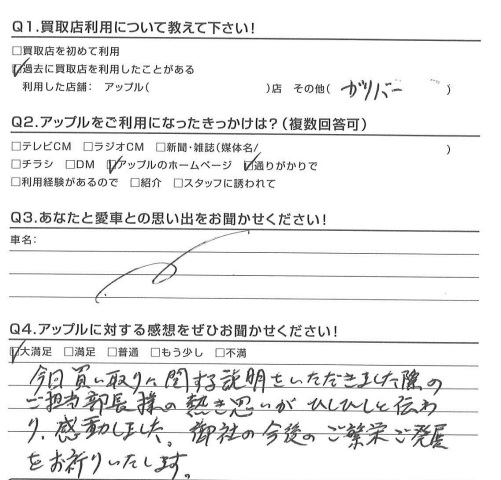 Q1.買取店利用について教えて下さい!
□買取店を初めて利用
☑過去に買取店を利用したことがある
利用した店舗: アップル( )店 その他( ガリバー )
Q2.アップルをご利用になったきっかけは?(複数回答可)
□テレビCM □ラジオCM □新聞・雑誌(媒体名/ )
□チラシ □DM ☑アップルのホームページ ☑通りがかりで
□利用経験があるので □紹介 □スタッフに誘われて
Q3.あなたと愛車との思い出をお聞かせください!
車名:
Q4.アップルに対する感想をぜひお聞かせください!
☑大満足 □満足 □普通 □もう少し □不満
今日買い取りに関する説明をいただきました際の
ご担当部長様の熱き思いがひしひしと伝わ
り、感動しました。御社の今後のご繁栄ご発展
をお祈りいたします。